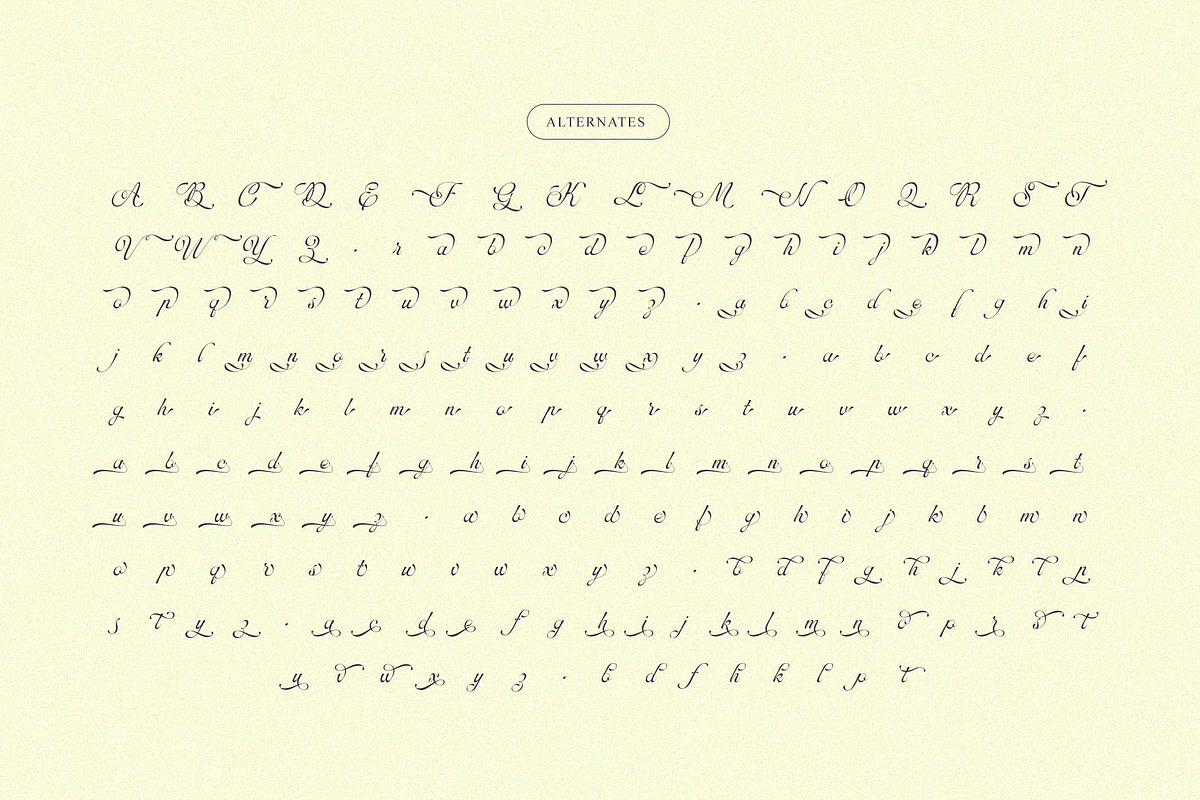 ALTERNATES
A B C D E F G K L M N O Q R S T
V W Y Z · r a b c d e f g h i j k l m n
o p q r s t u v w x y z · a b c d e f g h i
j k l m n o r s t u v w x y z · a b c d e f
g h i j k l m n o p q r s t u v w x y z ·
a b c d e f g h i j k l m n o p q r s t
u v w x y z · a b c d e f g h i j k l m n
o p q r s t u v w x y z · b d f g h j k l p
s t y z · a c d e f g h i j k l m n o p r s t
u v w x y z · b d f h k l p t